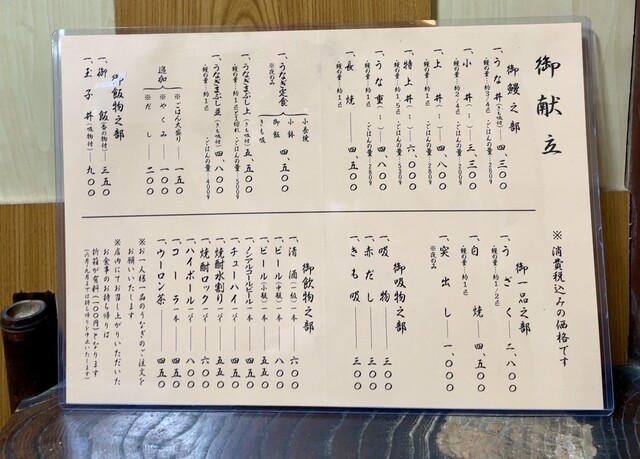 御献立
御鰻之部
一、うな丼(きも吸付)―四、三〇〇
鰻の量:約3/4匹 ・ごはんの量:280g
一、小丼( 〃 )―三、三〇〇
鰻の量:約2/4匹 ・ごはんの量:200g
一、上丼( 〃 )―四、八〇〇
鰻の量:約1匹 ・ごはんの量:280g
一、特上丼( 〃 )―六、〇〇〇
鰻の量:約1.5匹 ・ごはんの量:530g
一、うな重( 〃 )―四、八〇〇
鰻の量:約1匹 ・ごはんの量:280g
一、長焼―四、五〇〇
鰻の量:約1匹
一、うなぎ定食
※夜のみ
小長焼
小鉢
御飯
きも吸
四、五〇〇
一、うなぎまぶし上(きも吸付)五、五〇〇
鰻の量:約1匹と2切れ ・ごはんの量:500g
一、うなぎまぶし並(きも吸付)四、八〇〇
鰻の量:約1匹 ・ごはんの量:400g
追加
※ごはん大盛り―一五〇
※やくみ―一〇〇
※だし―二〇〇
御飯物之部
一、御飯(香の物付)―三五〇
一、玉子丼(吸物付)―九〇〇
※消費税込みの価格です
御一品之部
一、うざく―二、八〇〇
鰻の量:約1/2匹
一、白焼―四、五〇〇
鰻の量:約1匹
一、突出し―一、〇〇〇
※夜のみ
御吸物之部
一、吸物―三〇〇
一、赤だし―三〇〇
一、きも吸―三〇〇
御飲物之部
一、清酒(二級)一本―六〇〇
一、ビール(中瓶)一本―八〇〇
一、ビール(小瓶)一本―五五〇
一、ノンアルコールビール一本―四五〇
一、チューハイ一杯―四五〇
一、焼酎水割り一杯―五五〇
一、焼酎ロック一杯―六〇〇
一、ハイボール一杯―八〇〇
一、コーラ一本―四五〇
一、ウーロン茶―四五〇
※お一人様一品のうなぎのご注文を
お願いいたします
※店内にてお召し上がりいただいた
お食事のお持ち帰りは
折箱が有料(一〇〇円)となります